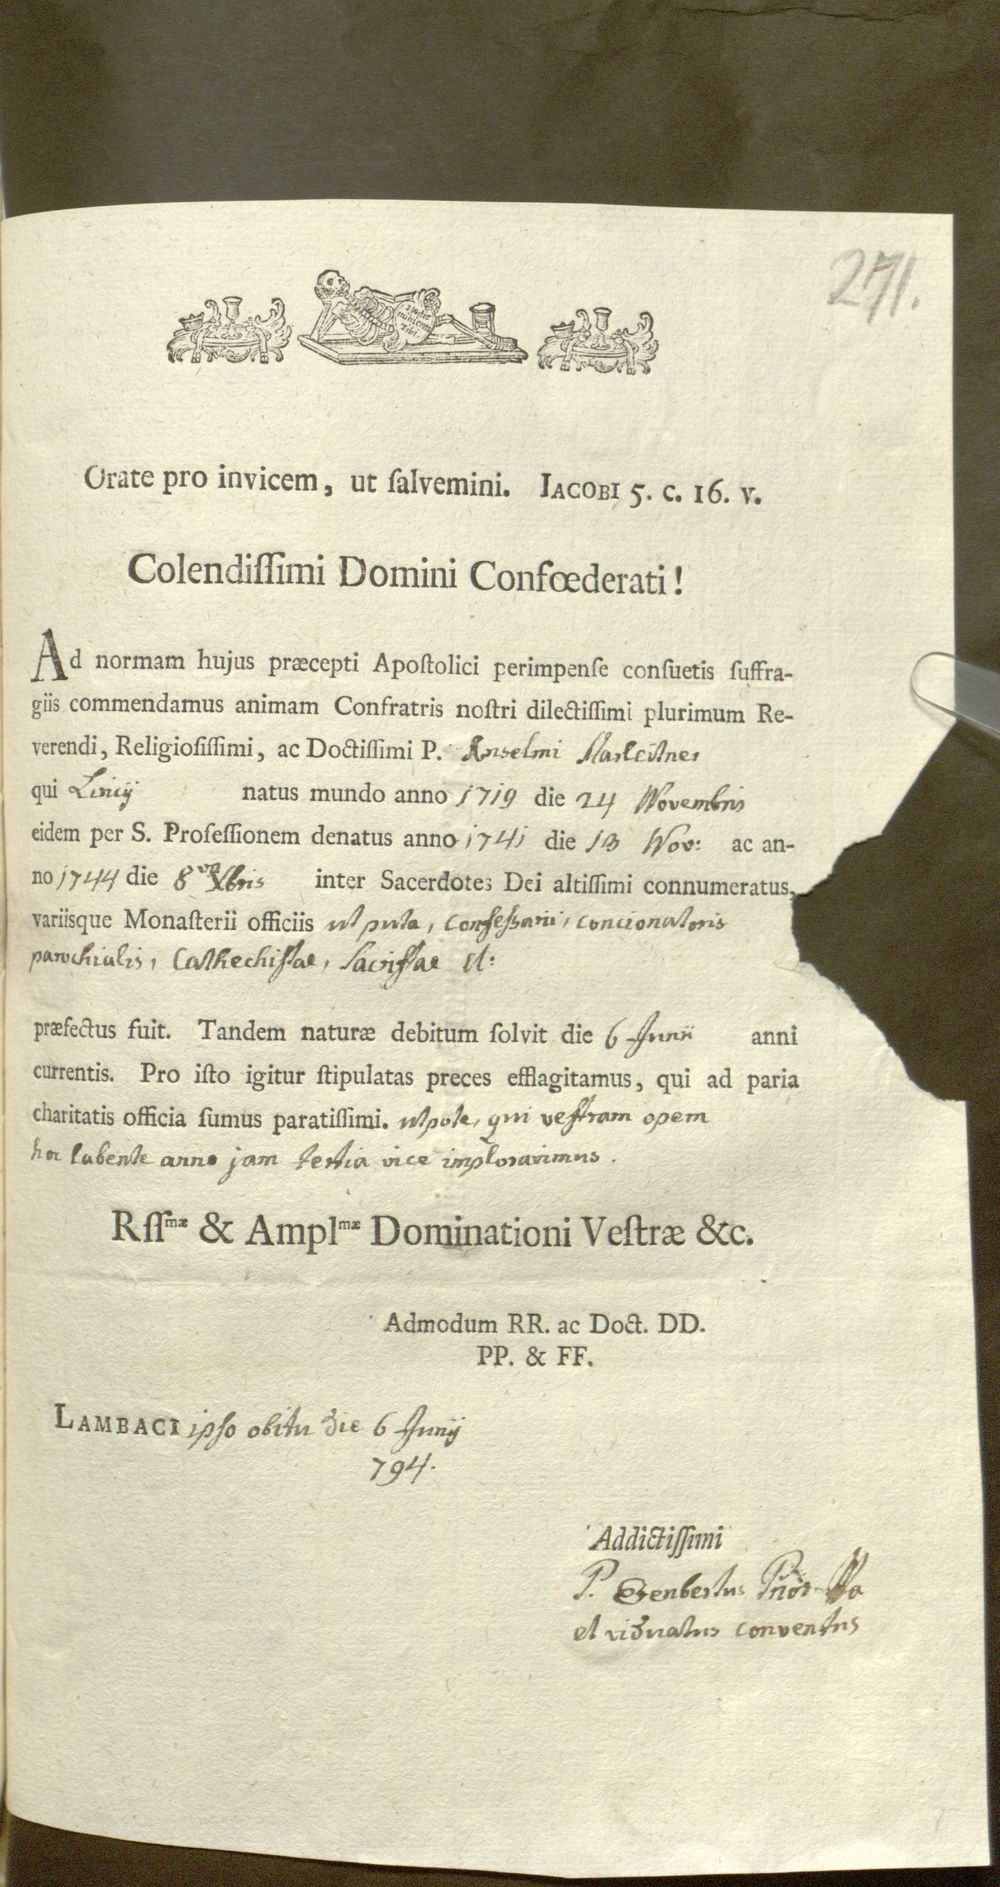 271.
Hodie mihi cras Tibi.
Orate pro invicem, ut ſalvemini. IACOBI 5. c. 16. v.
Colendiſſimi Domini Confœderati!
Ad normam hujus præcepti Apoſtolici perimpenſe conſuetis ſuffra-
giis commendamus animam Confratris noſtri dilectiſſimi plurimum Re-
verendi, Religioſiſſimi, ac Doctiſſimi P. Anselmi
qui Lincij natus mundo anno 1719 die 24 Novembris
eidem per S. Profeſſionem denatus anno 1741 die 13 Nov: ac an-
no 1744 die 8va Xbris inter Sacerdotes Dei altiſſimi connumeratus,
variisque Monaſterii officiis ut puta, confeſsarii, concionatoris
parochialis, Cathechiſtae, Sacriſtae et:
præfectus fuit. Tandem naturæ debitum ſolvit die 6 Junii anni
currentis. Pro iſto igitur ſtipulatas preces efflagitamus, qui ad paria
charitatis officia ſumus paratiſſimi. utpote, qui veſtram opem
hoc labente anno jam tertia vice imploravimus.
Rſſmæ & Amplmæ Dominationi Veſtræ &c.
Admodum RR. ac Doct. DD.
PP. & FF.
LAMBACI ipso obitu die 6 Junij
794.
Addictiſſimi
P. Prior
et viduatus conventus